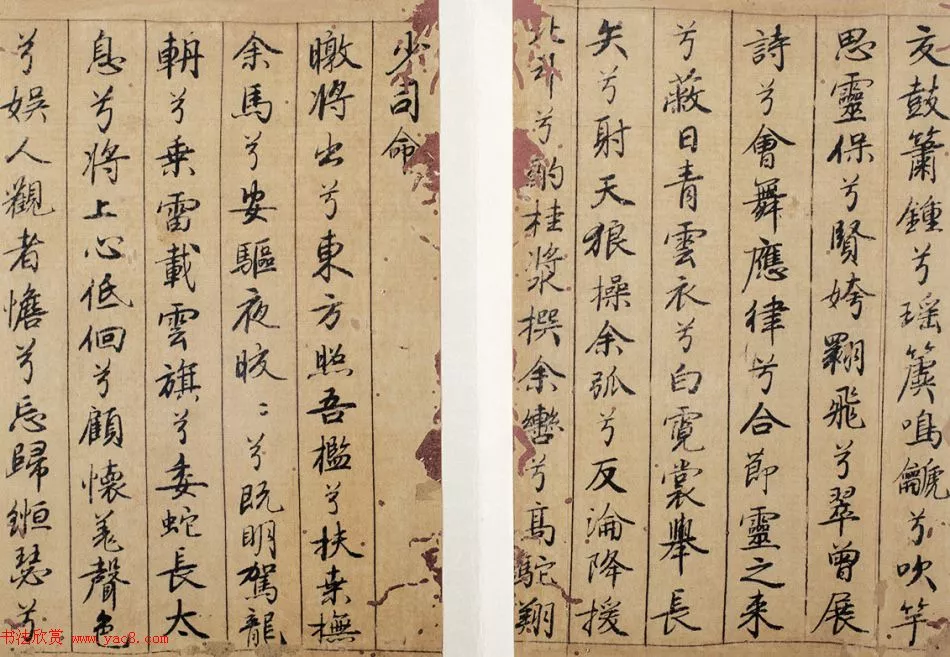 少司命
暾將出兮東方照吾檻兮扶桑撫
余馬兮安驅夜晈〻兮既明駕龍
輈兮乘雷載雲旗兮委蛇長太
息兮將上心低佪兮顧懷羌聲色
兮娛人觀者憺兮忘歸縆瑟兮
交鼓簫鍾兮瑤簴鳴鷈兮吹竽
思靈保兮賢姱翾飛兮翠曾展
詩兮會舞應律兮合節靈之來
兮蔽日青雲衣兮白霓裳舉長
矢兮射天狼操余弧兮反淪降援
北斗兮酌桂漿撰余轡兮高駝翔
书法欣赏 www.yac8.com